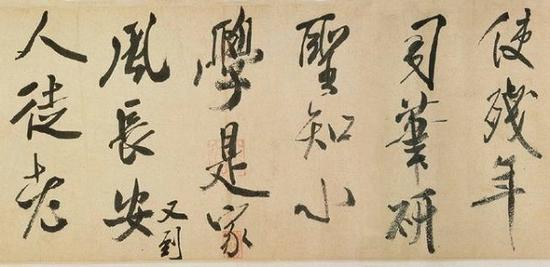 使殘年
司筆研
聖知小
學是家
風長安又到
人徒老